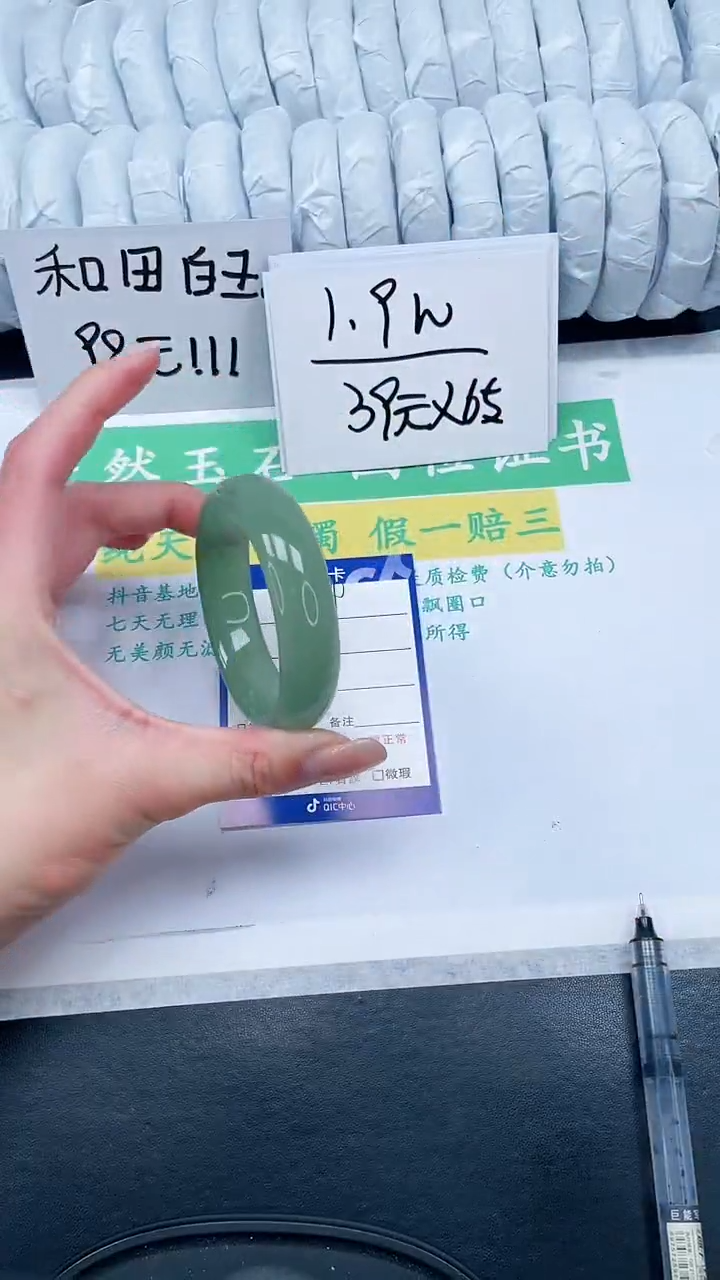 和田白玉
99元!!!
1.9W
39元X6支
然玉石 证书
镯 假一赔三
抖音基地 质检费（介意勿拍）
七天无理 飘圈口
无美颜无滤 所得
卡
备注
正常
□微瑕
QIC中心
巨能写